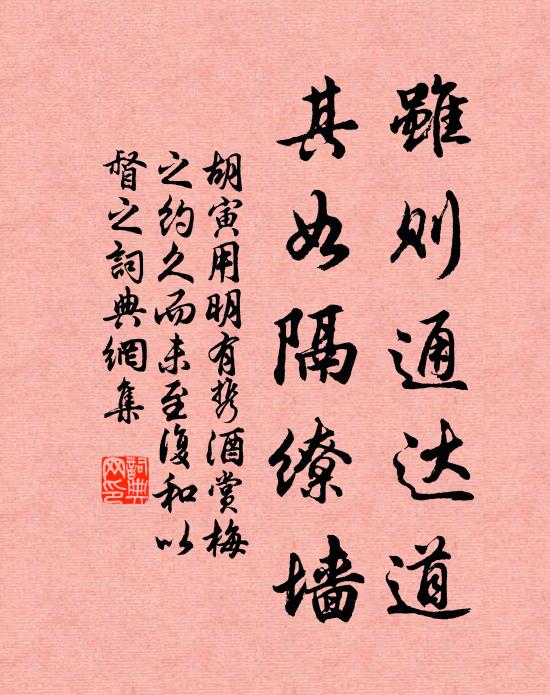 雖则通达道
其如隔缭墙
胡寅用明有携酒赏梅
之约久而未至复和以
督之词典網集
詞典網印